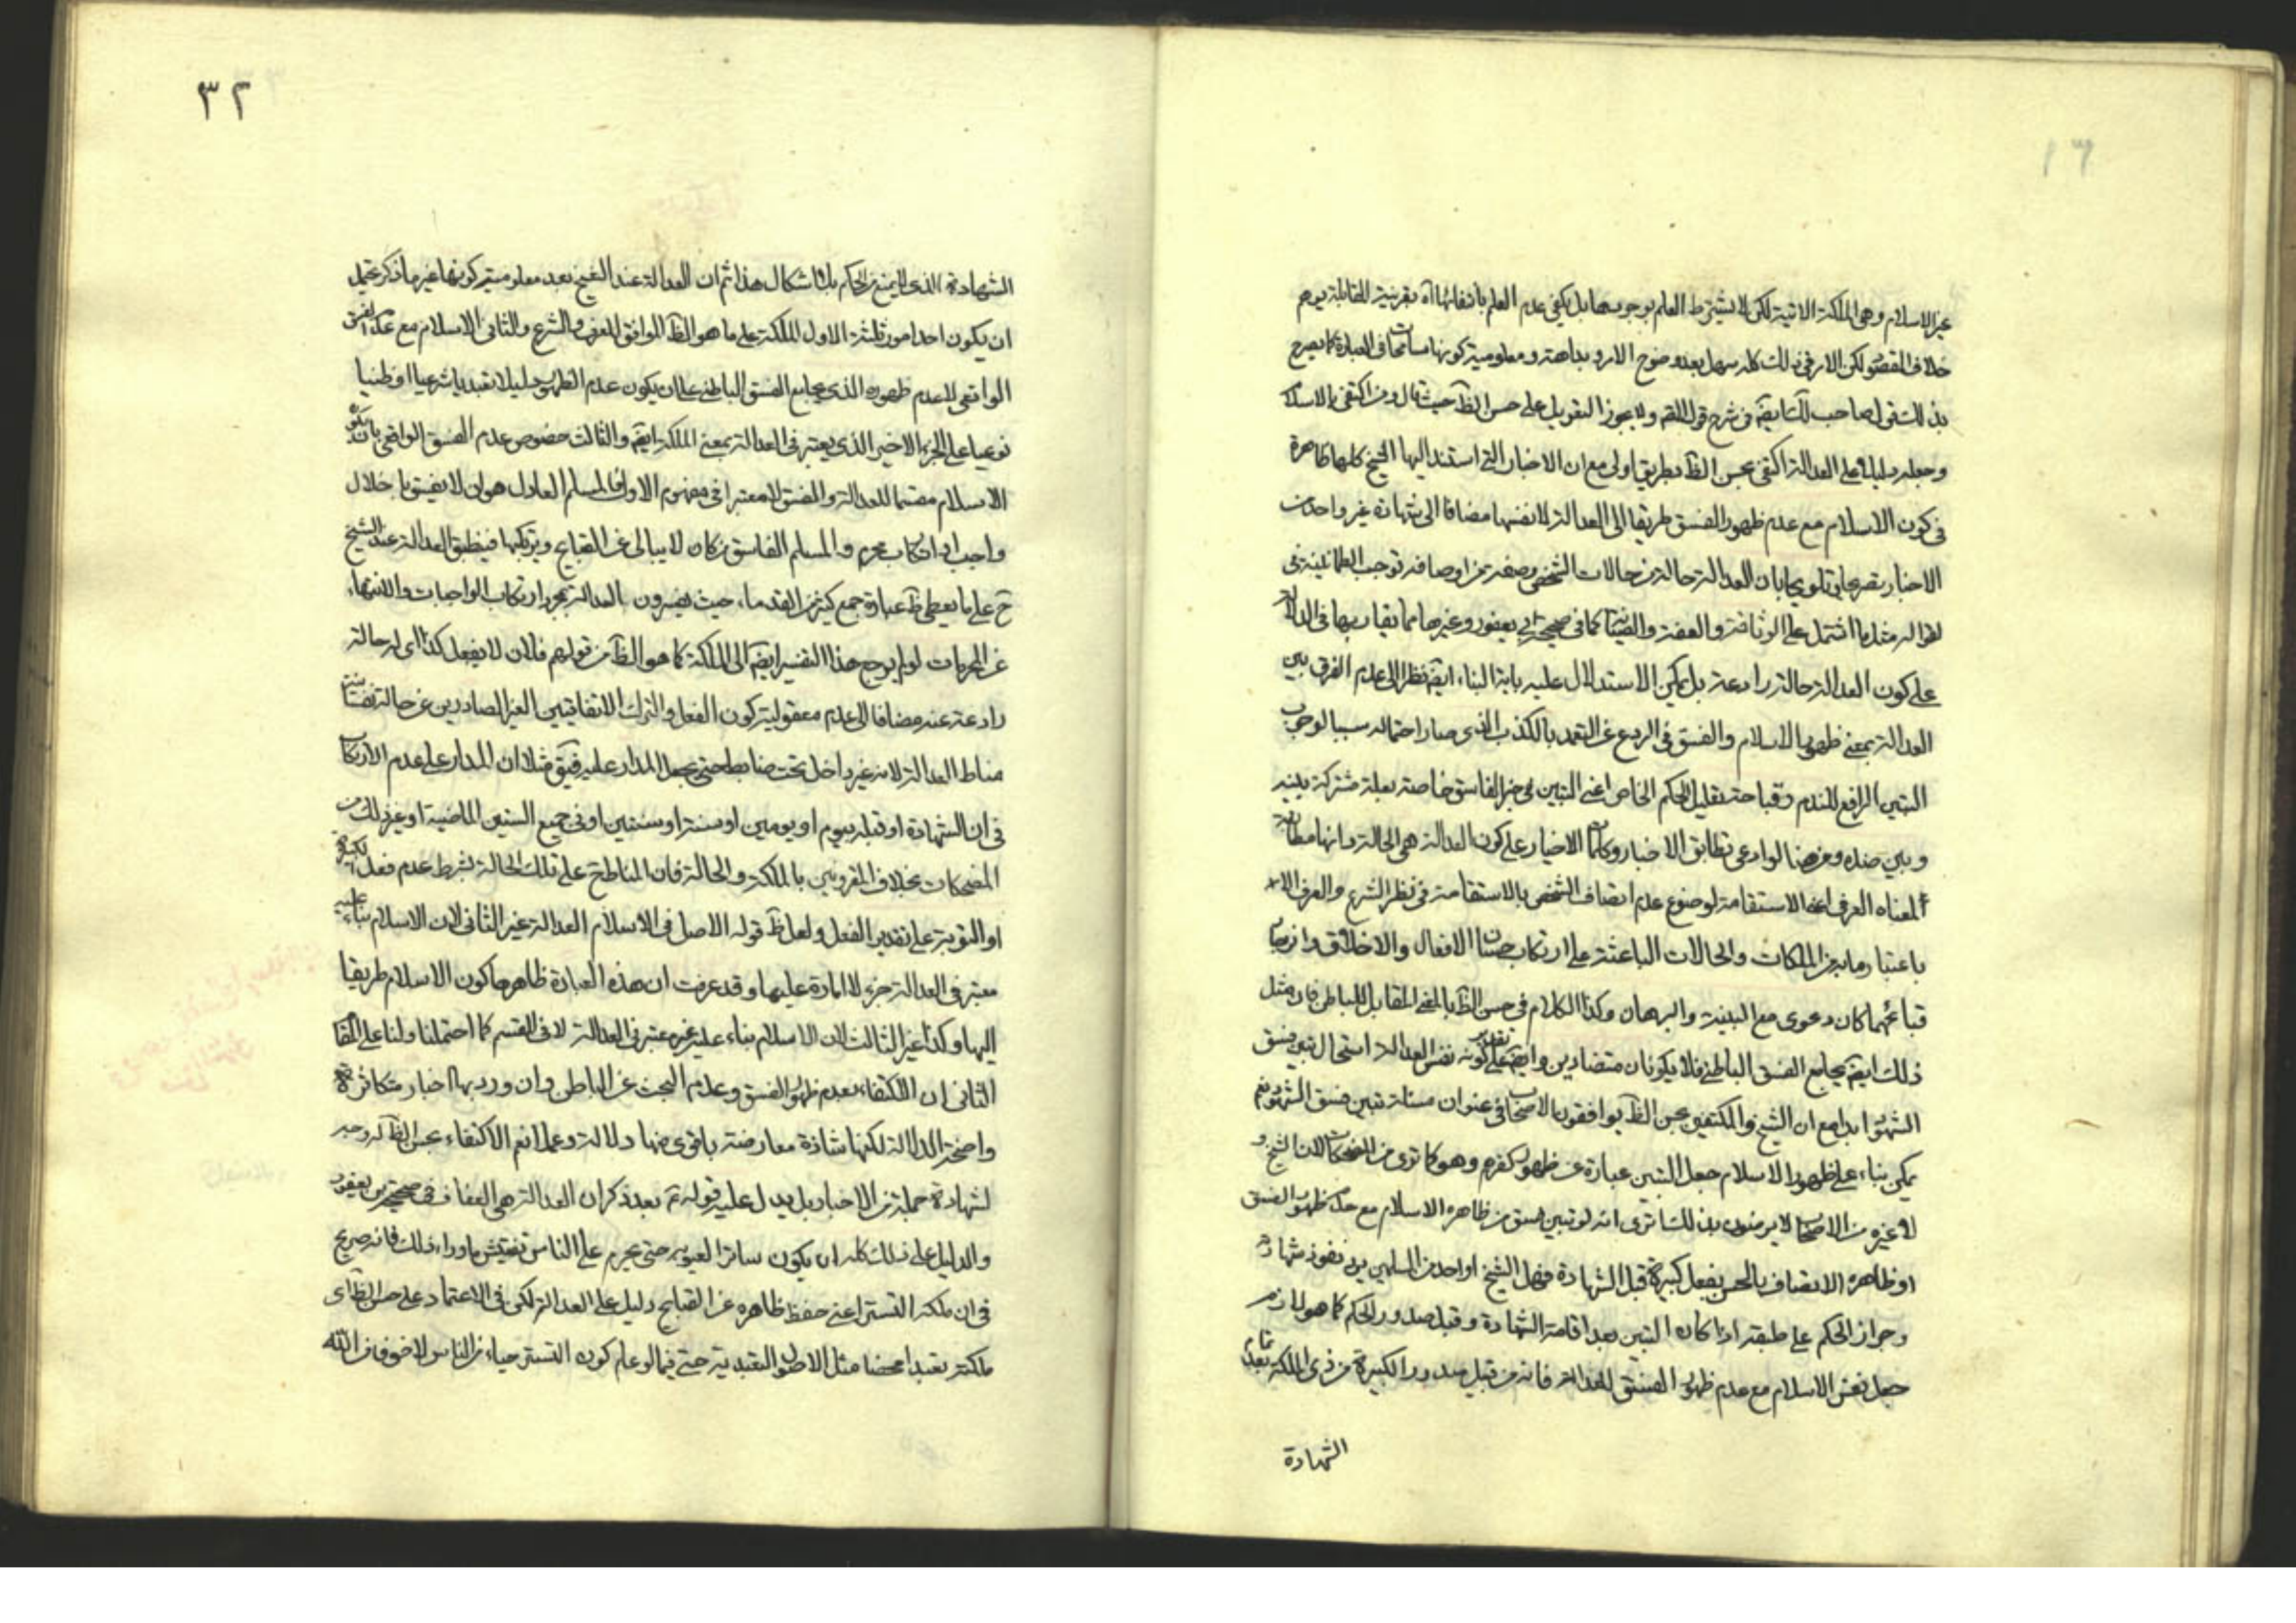 غير الاسلام وهى الملكة الاتية لكن لا يشترط العلم بوجودها بل يكفى عدم العلم بانتفائها اه بقرينة المقابلة يوهم
خلاف المقصو لكن الامر فى ذلك كله سهل بعد وضوح الامر وبداهته ومعلومية كونها مسامحات فى العبارة كما يصرح
بذلك قول صاحب لك ايضا فى شرح قول المص ولا يجوز التعويل على حسن الظ حيث قال ومن اكتفى بالاسلا
وجعله دليلا على العدالة اكتفى بحسن الظ بطريق اولى مع ان الاخبار التى استند اليها الشيخ كلها ظاهرة
فى كون الاسلام مع عدم ظهور الفسق طريقا الى العدالة لا نفسها مضافا الى شهادة غير واحد من
الاخبار تصريحا وتلويحا بان العدالة حالة من حالات الشخص وصفة من اوصافه توجب الطمانينة فى
مثل ما اشتمل على الوثاقة والعفة والصيانة كما فى صحيحة ابن ابى يعفور وغيرها مما يقاربها فى الدلالة
على كون العدالة حالة رادعة بل يمكن الاستدلال عليه باية النباء ايضا نظرا الى عدم الفرق بين
العدالة بمعنى ظهور الاسلام والفسق فى الردع عن التعمد بالكذب الذى صار احتماله سببا لوجوب
التبين الرافع للندم وقباحة تعليل الحكم الخاص اعنى التبين فى خبر الفاسق خاصة بعلة مشتركة بينه
وبين ضده وعرضنا لو ادعى تطابق الاخبار وكلمات الاخيار على كون العدالة هى الحالة وانها مطابقة
لمعناه العرفى اعنى الاستقامة لوضوح عدم اتصاف الشخص بالاستقامة فى نظر الشرع والعرف الا
باعتبار ما به من الملكات والحالات الباعثة على ارتكاب حسنات الافعال والاخلاق وانزجار
قبائحهما كان دعوى مع البينة والبرهان وكذا الكلام فى حسن الظ بالمعنى المقابل للباطن فان مثل
ذلك ايضا يجامع الفسق الباطنى فلا يكونان متضادين وايضا على تقدير كونه نفس العدالة استحال تبين فسق
الشهود ابدا مع ان الشيخ والمكتفين بحسن الظ يوافقون الاصحاب فى عنوان مسئلة تبين فسق الشهود نعم
يمكن بناء على ظهور الاسلام جعل التبين عبارة عن ظهور كفرهم وهو كما ترى من المضحكات لان الشيخ و
لا غيره من الاصحاب لا يرضون بذلك اترى انه لو تبين فسق من ظاهره الاسلام مع عدم ظهور الفسق
او ظاهره الاتصاف بالحسن بفعل كبيرة قبل الشهادة فهل الشيخ او احد من المسلمين يرى نفوذ شهادته
وجواز الحكم على طبقه اذا كان التبين بعد اقامة الشهادة وقبل صدور الحكم كما هو لازم
جعل نفس الاسلام مع عدم ظهور الفسق العدالة فانه من قبيل صدور الكبيرة من ذى الملكة بعد تمام
الشهادة
٣٢
الشهادة الذى لا يمنع من الحكم بلا اشكال هذا ثم ان العدالة عند الشيخ بعد معلومية كونها غير ما ذكر يحتمل
ان يكون احد امور ثلثة الاول الملكة على ما هو الظ الموافق للعرف والشرع والثانى الاسلام مع عدم الفسق
الواقعى لا عدم ظهوره الذى يجامع الفسق الباطنى على ان يكون عدم الظهور دليلا تعبديا شرعيا او ظنيا
نوعيا على الجزء الاخير الذى يعتبر فى العدالة بمعنى الملكة ايضا والثالث خصوص عدم الفسق الواقعى بان يكون
الاسلام مقسما للعدالة والفسق لا معتبرا فى مفهوم الاولى فالمسلم العادل هو الذى لا يفسق باخلال
واجب او ارتكاب محرم والمسلم الفاسق من كان لا يبالى عن القبايح ويرتكبها فينطبق العدالة عند الشيخ
ح على ما يعطى ظ عبارة جمع كثير من القدماء، حيث يفسرون العدالة بمجرد ارتكاب الواجبات والانتهاء
عن المحرمات لو لم يرجع هذا التفسير ايضا الى الملكة كما هو الظ من قولهم فلان لا يفعل كذا اى له حالة
رادعة عنه مضافا الى عدم معقولية كون الفعل والترك الاتفاقيين الغير الصادرين عن حالة نفسانية
مناط العدالة لانه غير داخل تحت ضابط حتى يجعل المدار عليه فيق مثلا ان المدار على عدم الارتكاب
فى ان الشهادة او قبله بيوم او يومين او سنة او سنتين او فى جميع السنين الماضية او غير ذلك من
المضحكات بخلاف المقرونين بالملكة والحالة فان المناط ح على تلك الحالة بشرط عدم فعل الكبيرة
او التوبة على تقدير الفعل ولعل ظ قوله الاصل فى الاسلام العدالة غير الثانى لان الاسلام بناء عليه
معتبر فى العدالة جزء لا امارة عليها وقد عرفت ان هذه العبارة ظاهرها كون الاسلام طريقا
اليها وكذا غير الثالث لان الاسلام بناء عليه غير معتبر فى العدالة لا فى القسم كما احتملنا ولنا على المقام
الثانى ان الاكتفاء بعدم ظهور الفسق وعدم البحث عن الباطن وان ورد بها اخبار متكاثرة
واضحة الدلالة لكنها شاذة معارضة باقوى منها دلالة وعملا نعم الاكتفاء بحسن الظ له وجه
لشهادة جملة من الاخبار بل يدل عليه قوله ع بعد ذكر ان العدالة هى العفاف فى صحيحة بن يعفور
والدليل على ذلك كله ان يكون ساترا لعيوبه حتى يحرم على الناس تفتيش ما وراء ذلك فانه صريح
فى ان ملكة التستر اعنى حفظ ظاهره عن القبايح دليل على العدالة لكن فى الاعتماد على حسن الظ اى
ملكته تعبدا محضا مثل الاصول التعبدية حتى فيما لو علم كون التستر حياء من الناس لا خوفا من الله